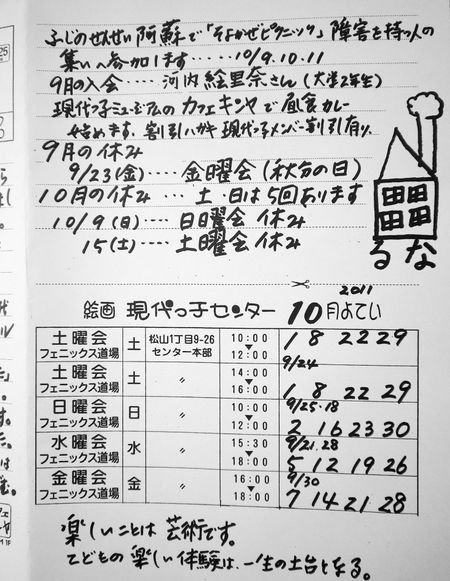 ふじのせんせい 阿蘇で「そよかぜピクニック」障害を持つ人の
集いへ参加します‥‥ 10/9.10.11
9月の入会‥‥河内絵里奈さん(大学2年生)
現代っ子ミュージアムのカフェキンヤで昼食カレー
始めます. 割引ハガキ 現代っ子メンバー割引有り.
9月の休み
9/23(金)‥‥ 金曜会(秋分の日)
10月の休み 土・日は5回あります
10/9(日)‥‥ 日曜会 休み
15(土)‥‥ 土曜会 休み
るな
2011
絵画 現代っ子センター 10月よてい
土曜会 フェニックス道場 土 松山1丁目9-26 センター本部 10:00 ▼ 12:00 1 8 22 29
9/24
土曜会 フェニックス道場 土 〃 14:00 ▼ 16:00 1 8 22 29
9/25・18
日曜会 フェニックス道場 日 〃 10:00 ▼ 12:00 2 16 23 30
9/21.28
水曜会 フェニックス道場 水 〃 15:30 ▼ 18:00 5 12 19 26
9/30
金曜会 フェニックス道場 金 〃 16:00 ▼ 18:00 7 14 21 28
楽しいことは 芸術です。
こどもの 楽しい体験は、一生の土台となる。